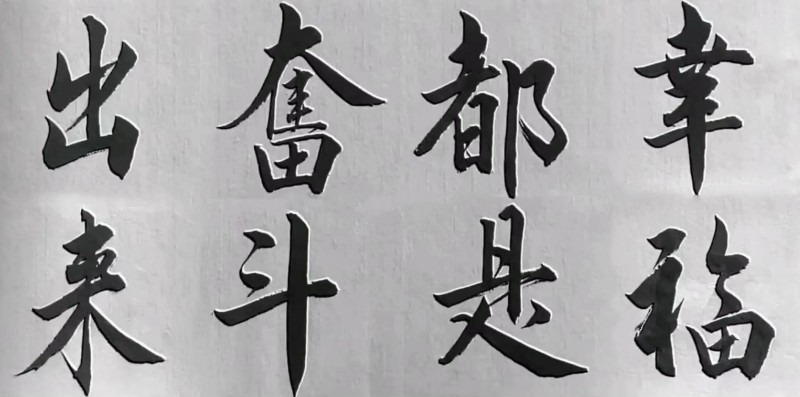 幸福
都是
奋斗
出来